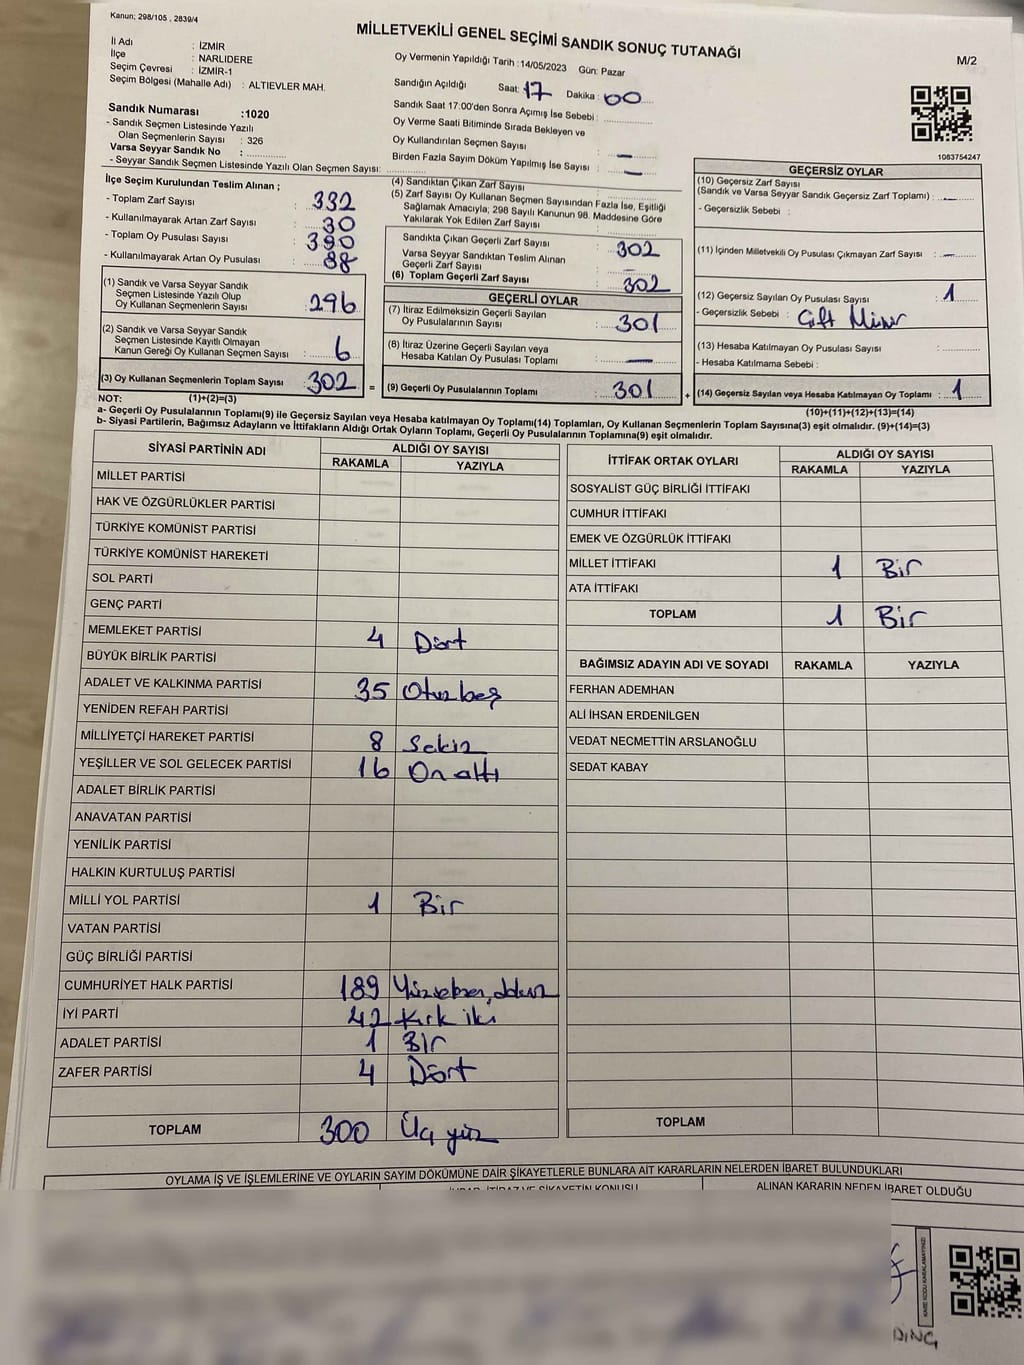 Kanun: 298/105 , 2839/4
MİLLETVEKİLİ GENEL SEÇİMİ SANDIK SONUÇ TUTANAĞI
M/2
İl Adı : İZMİR
İlçe : NARLIDERE
Seçim Çevresi : İZMİR-1
Seçim Bölgesi (Mahalle Adı) : ALTIEVLER MAH.
Oy Vermenin Yapıldığı Tarih :14/05/2023 Gün: Pazar
Sandığın Açıldığı Saat: 17 Dakika : 00
Sandık Saat 17:00'den Sonra Açımış İse Sebebi :
Oy Verme Saati Bitiminde Sırada Bekleyen ve
Oy Kullandırılan Seçmen Sayısı : —
Birden Fazla Sayım Döküm Yapılmış İse Sayısı : —
Sandık Numarası :1020
- Sandık Seçmen Listesinde Yazılı
Olan Seçmenlerin Sayısı : 326
Varsa Seyyar Sandık No :
- Seyyar Sandık Seçmen Listesinde Yazılı Olan Seçmen Sayısı:
1083754247
İlçe Seçim Kurulundan Teslim Alınan ;
- Toplam Zarf Sayısı : 332
- Kullanılmayarak Artan Zarf Sayısı : 30
- Toplam Oy Pusulası Sayısı : 390
- Kullanılmayarak Artan Oy Pusulası : 88
(1) Sandık ve Varsa Seyyar Sandık
Seçmen Listesinde Yazılı Olup
Oy Kullanan Seçmenlerin Sayısı : 296
(2) Sandık ve Varsa Seyyar Sandık
Seçmen Listesinde Kayıtlı Olmayan
Kanun Gereği Oy Kullanan Seçmen Sayısı : 6
(3) Oy Kullanan Seçmenlerin Toplam Sayısı : 302 =
(4) Sandıktan Çıkan Zarf Sayısı :
(5) Zarf Sayısı Oy Kullanan Seçmen Sayısından Fazla İse, Eşitliği
Sağlamak Amacıyla; 298 Sayılı Kanunun 98. Maddesine Göre
Yakılarak Yok Edilen Zarf Sayısı :
Sandıkta Çıkan Geçerli Zarf Sayısı : 302
Varsa Seyyar Sandıktan Teslim Alınan
Geçerli Zarf Sayısı :
(6) Toplam Geçerli Zarf Sayısı : 302
GEÇERLİ OYLAR
(7) İtiraz Edilmeksizin Geçerli Sayılan
Oy Pusulalarının Sayısı : 301
(8) İtiraz Üzerine Geçerli Sayılan veya
Hesaba Katılan Oy Pusulası Toplamı : —
(9) Geçerli Oy Pusulalarının Toplamı : 301 +
GEÇERSİZ OYLAR
(10) Geçersiz Zarf Sayısı
(Sandık ve Varsa Seyyar Sandık Geçersiz Zarf Toplamı) : —
- Geçersizlik Sebebi :
(11) İçinden Milletvekili Oy Pusulası Çıkmayan Zarf Sayısı : —
(12) Geçersiz Sayılan Oy Pusulası Sayısı : 1
- Geçersizlik Sebebi : Çift Mühür
(13) Hesaba Katılmayan Oy Pusulası Sayısı :
- Hesaba Katılmama Sebebi :
(14) Geçersiz Sayılan veya Hesaba Katılmayan Oy Toplamı : 1
NOT: (1)+(2)=(3)
(10)+(11)+(12)+(13)=(14)
a- Geçerli Oy Pusulalarının Toplamı(9) ile Geçersiz Sayılan veya Hesaba katılmayan Oy Toplamı(14) Toplamları, Oy Kullanan Seçmenlerin Toplam Sayısına(3) eşit olmalıdır. (9)+(14)=(3)
b- Siyasi Partilerin, Bağımsız Adayların ve İttifakların Aldığı Ortak Oyların Toplamı, Geçerli Oy Pusulalarının Toplamına(9) eşit olmalıdır.
SİYASİ PARTİNİN ADI ALDIĞI OY SAYISI
RAKAMLA YAZIYLA
MİLLET PARTİSİ
HAK VE ÖZGÜRLÜKLER PARTİSİ
TÜRKİYE KOMÜNİST PARTİSİ
TÜRKİYE KOMÜNİST HAREKETİ
SOL PARTİ
GENÇ PARTİ
MEMLEKET PARTİSİ 4 Dört
BÜYÜK BİRLİK PARTİSİ
ADALET VE KALKINMA PARTİSİ 35 Otuzbeş
YENİDEN REFAH PARTİSİ
MİLLİYETÇİ HAREKET PARTİSİ 8 Sekiz
YEŞİLLER VE SOL GELECEK PARTİSİ 16 On altı
ADALET BİRLİK PARTİSİ
ANAVATAN PARTİSİ
YENİLİK PARTİSİ
HALKIN KURTULUŞ PARTİSİ
MİLLİ YOL PARTİSİ 1 Bir
VATAN PARTİSİ
GÜÇ BİRLİĞİ PARTİSİ
CUMHURİYET HALK PARTİSİ 189 Yüzseksendokuz
İYİ PARTİ 42 Kırk iki
ADALET PARTİSİ 1 Bir
ZAFER PARTİSİ 4 Dört
TOPLAM 300 Üç yüz
İTTİFAK ORTAK OYLARI ALDIĞI OY SAYISI
RAKAMLA YAZIYLA
SOSYALİST GÜÇ BİRLİĞİ İTTİFAKI
CUMHUR İTTİFAKI
EMEK VE ÖZGÜRLÜK İTTİFAKI
MİLLET İTTİFAKI 1 Bir
ATA İTTİFAKI
TOPLAM 1 Bir
BAĞIMSIZ ADAYIN ADI VE SOYADI RAKAMLA YAZIYLA
FERHAN ADEMHAN
ALİ İHSAN ERDENİLGEN
VEDAT NECMETTİN ARSLANOĞLU
SEDAT KABAY
TOPLAM
OYLAMA İŞ VE İŞLEMLERİNE VE OYLARIN SAYIM DÖKÜMÜNE DAİR ŞİKAYETLERLE BUNLARA AİT KARARLARIN NELERDEN İBARET BULUNDUKLARI
İTİRAZ VE ŞİKAYETİN KONUSU
ALINAN KARARIN NEDEN İBARET OLDUĞU
KARE KODU KARALAMAYINIZ!